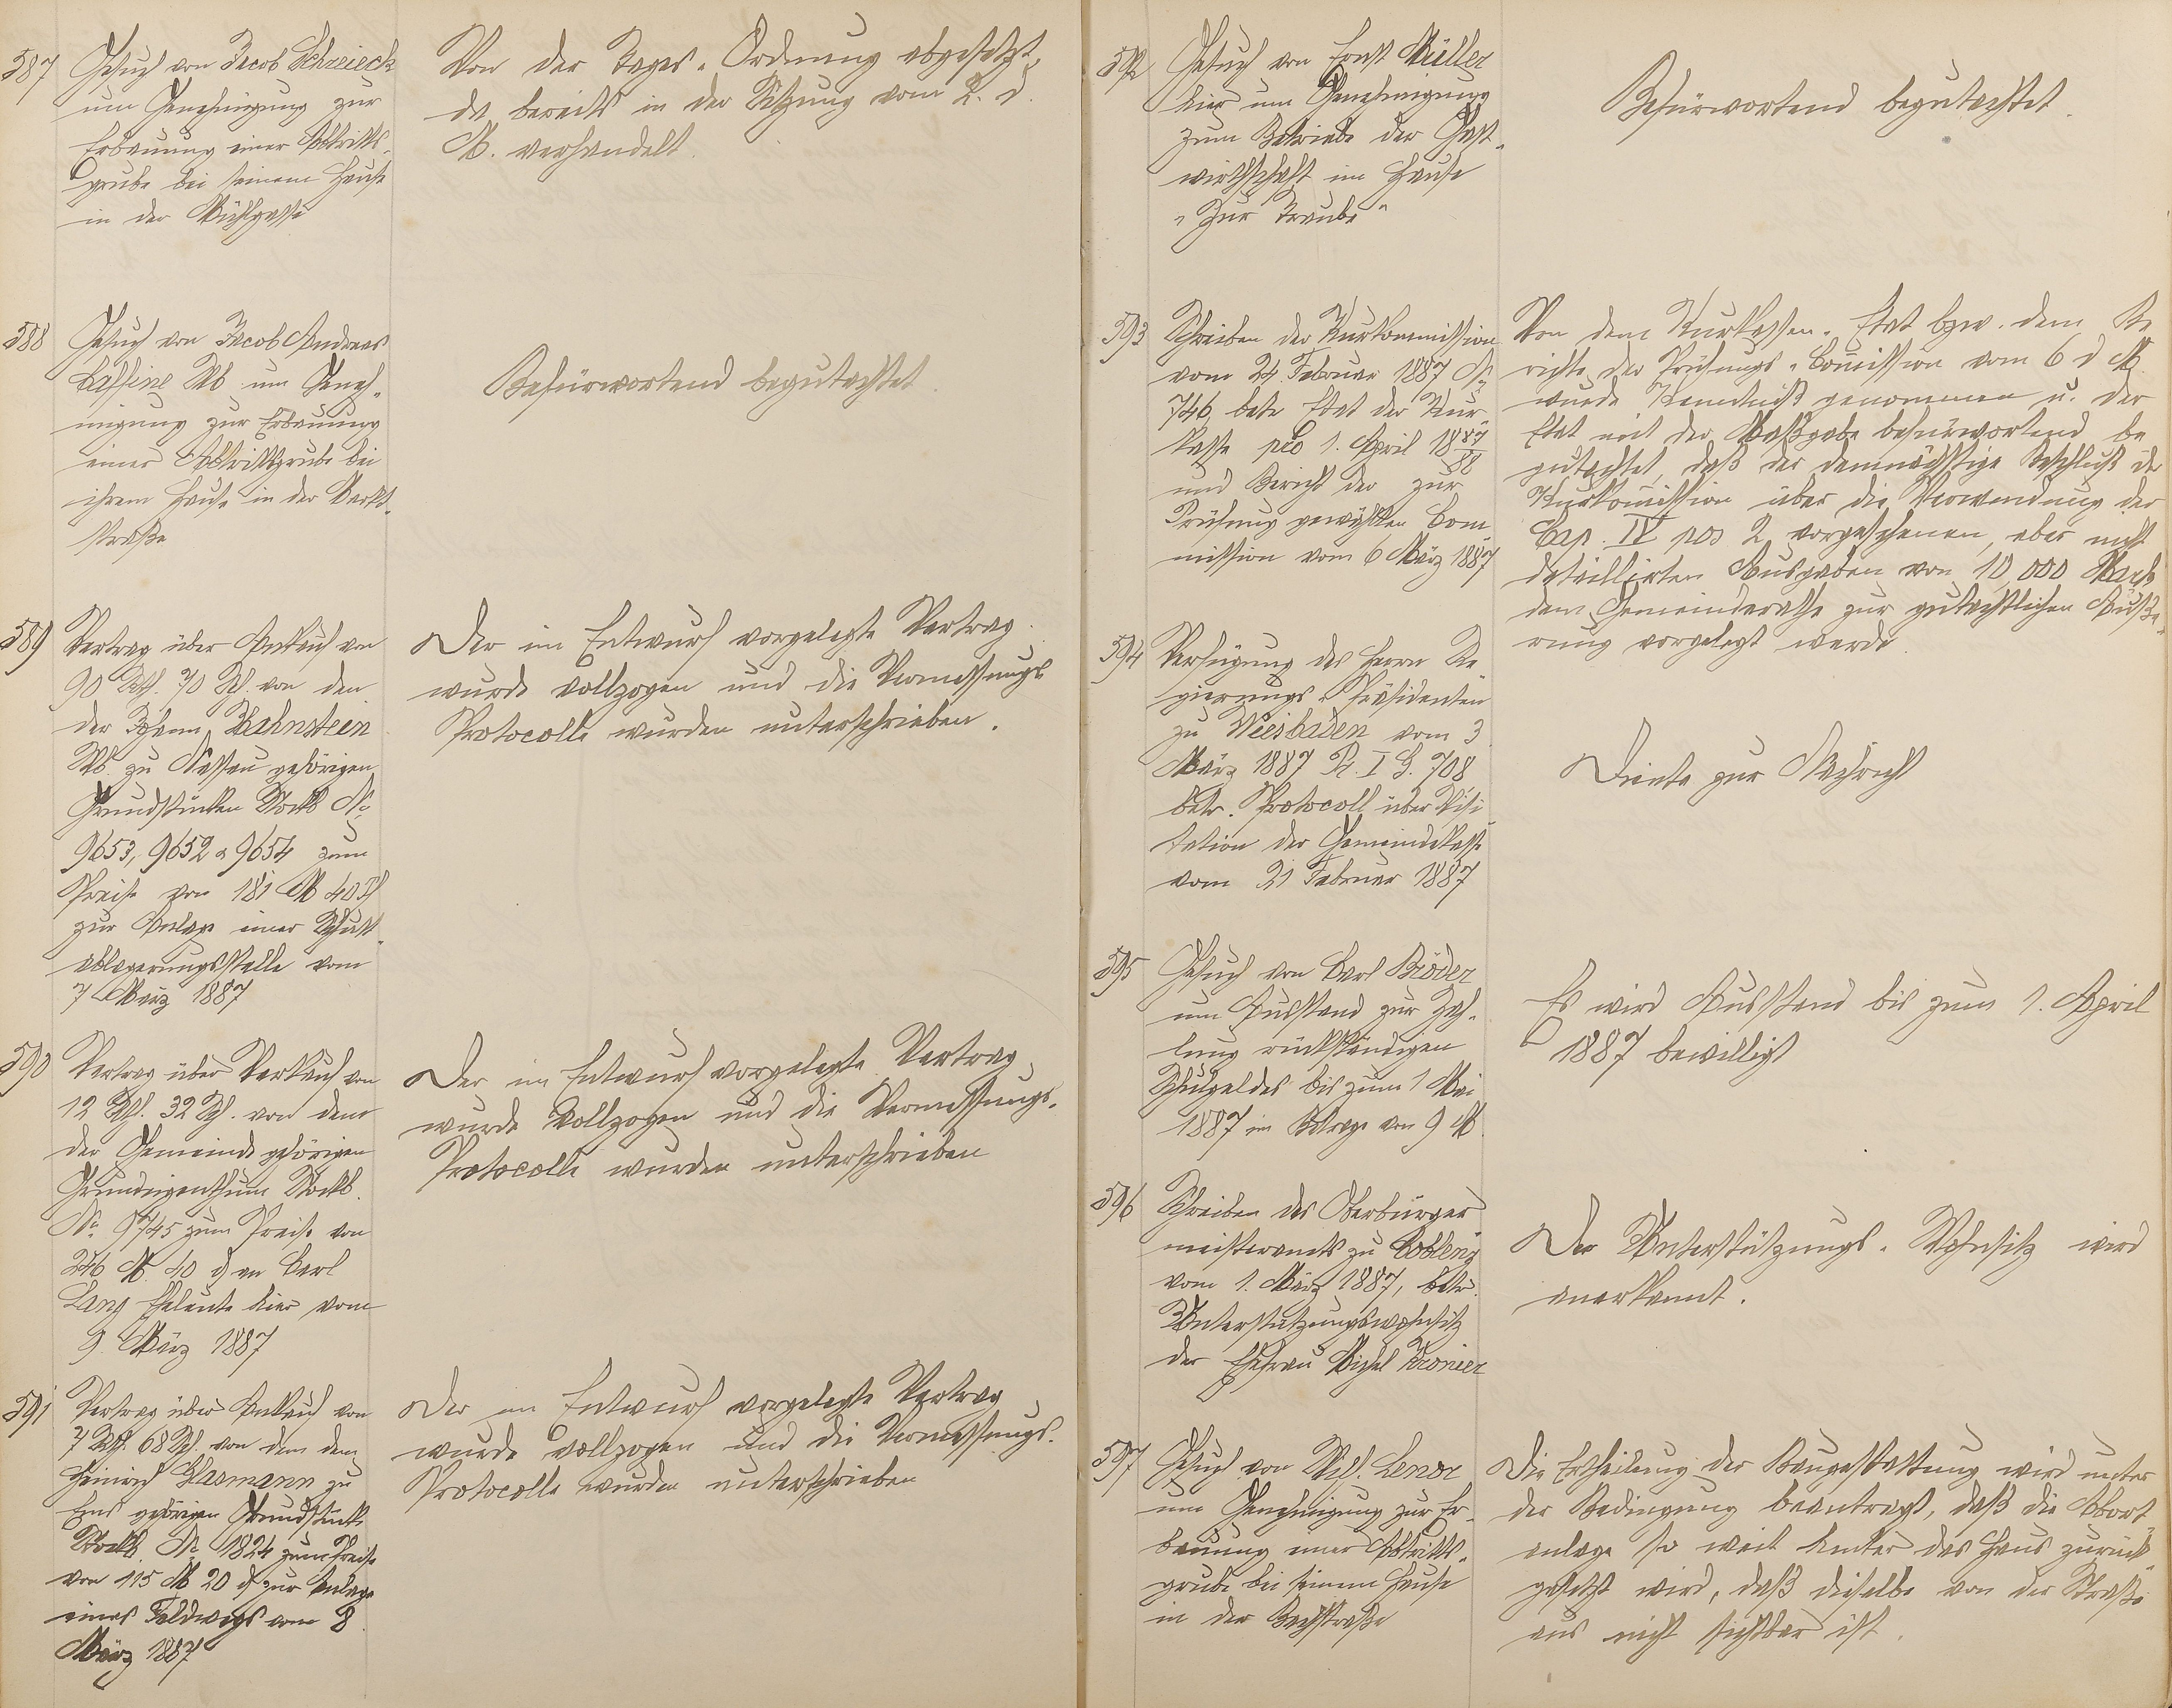 587
Gesuch von Jacob Schreieck
um Genehmigung zur
Erbauung einer Abtritts-
grube bei seinem Hause
in der Mühlgasse
Von der Tages-Ordnung abgesetzt,
da bereits in der Sitzung vom 2. d.
M. verhandelt
588
Gesuch von Jacob Andreas
Wb. um Geneh-
migung zur Erbauung
einer Abtrittsgrube bei
ihrem Hause in der Markt-
straße
Befürwortend begutachtet.
589
Vertrag über Ankauf von
90 Rth. 70 Sch. von den
der Johann Hahnstein
Wb. zu Nassau gehörigen
Grundstücken Stockb. No
9653, 9652 & 9654 zum
Preise von 181 M 40 d
zur Anlage einer Schutt-
ablagerungsstelle vom
7 März 1887
Der im Entwurf vorgelegte Vertrag
wurde vollzogen und die Vermessungs
Protocolle wurden unterschrieben.
590
Vertrag über Verkauf von
12 Rth. 32 Sch. von dem
der Gemeinde gehörigen
Grundeigenthum Stockb.
No. 9745 zum Preise von
246 M. 40 d an Carl
Lang Eheleute hier vom
9. März 1887
Der im Entwurf vorgelegte Vertrag
wurde vollzogen und die Vermessungs-
Protocolle wurden unterschrieben
591
Vertrag über Ankauf von
7 Rth. 68 Sch. von dem dem
Heinrich Glasmann zu
Ems gehörigen Grundstück
Stockb. No 1824 zum Preise
von 115 M 20 d zur Anlage
eines Feldwegs vom 8
März 1887
Der im Entwurf vorgelegte Vertrag
wurde vollzogen und die Vermessungs-
Protocolle wurden unterschrieben
592
Gesuch von Ernst Müller
hier um Genehmigung
zum Betriebe der Gast-
wirthschaft im Hause
"Zur Traube"
Befürwortend begutachtet.
593
Schreiben der Kurkommission
vom 24. Februar 1887 No
746, betr Etat der Kur-
kasse pro 1. April 1887/88
und Bericht der zur
Prüfung gewählten Com-
mission vom 6 März 1887
Von dem Kurkassen-Etat bzw. dem Be
richte der Prüfungs-Comission vom 6 d M.
wurde Kenntniß genommen u. der
Etat mit der Maßgabe befürwortend be
gutachtet, daß der demnächstige Beschluß der
Kurkomission über die Verwendung der
Cap. IV pos 2 vorgesehenen, aber nicht
detaillirten Ausgaben von 10,000 Mark
dem Gemeinderathe zur gutachtlichen Äuße-
rung vorgelegt werde.
594
Verfügung des Herrn Re
gierungs-Präsidenten
zu Wiesbaden vom 3
März 1887 Pr. I G. 708
betr. Protocoll über Visi
tation der Gemeindekasse
vom 21 Februar 1887
Diente zur Nachricht
595
Gesuch von Carl Bröder
um Ausstand zur Zah-
lung rückständigen
Schulgeldes bis zum 1 Mai
1887 im Betrage von 9 M.
Es wird Ausstand bis zum 1. April
1887 bewilligt
596
Schreiben des Oberbürger
meisteramts zu Coblenz
vom 1. März 1887, betr.
Unterstützungswohnsitz
der Ehefrau Michel Kronier
Der Unterstützungs-Wohnsitz wird
anerkannt.
597
Gesuch von Wilh. Lenor
um Genehmigung zur Er-
bauung einer Abtritts-
grube bei seinem Hause
in der Bachstraße
Die Ertheilung der Baugestattung wird unter
der Bedingung beantragt, daß die Abort
anlage so weit hinter das Haus zurück
gesetzt wird, daß dieselbe von der Straße
aus nicht sichtbar ist.